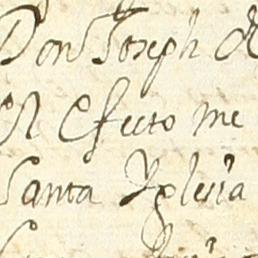 Don Joseph de
el Efecto me
Santa Yglesia